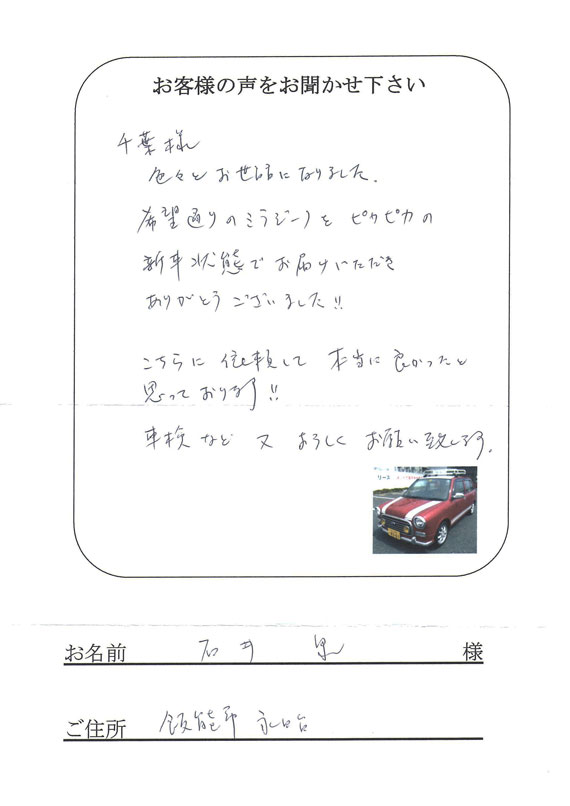 お客様の声をお聞かせ下さい
千葉様
色々とお世話になりました.
希望通りのミラジーノを ピカピカの
新車状態でお届けいただき
ありがとうございました!!
こちらに依頼して 本当に良かったと
思っております!!
車検など 又 よろしく お願い致します.
リース
お名前 石井 様
ご住所 飯能市 永田台